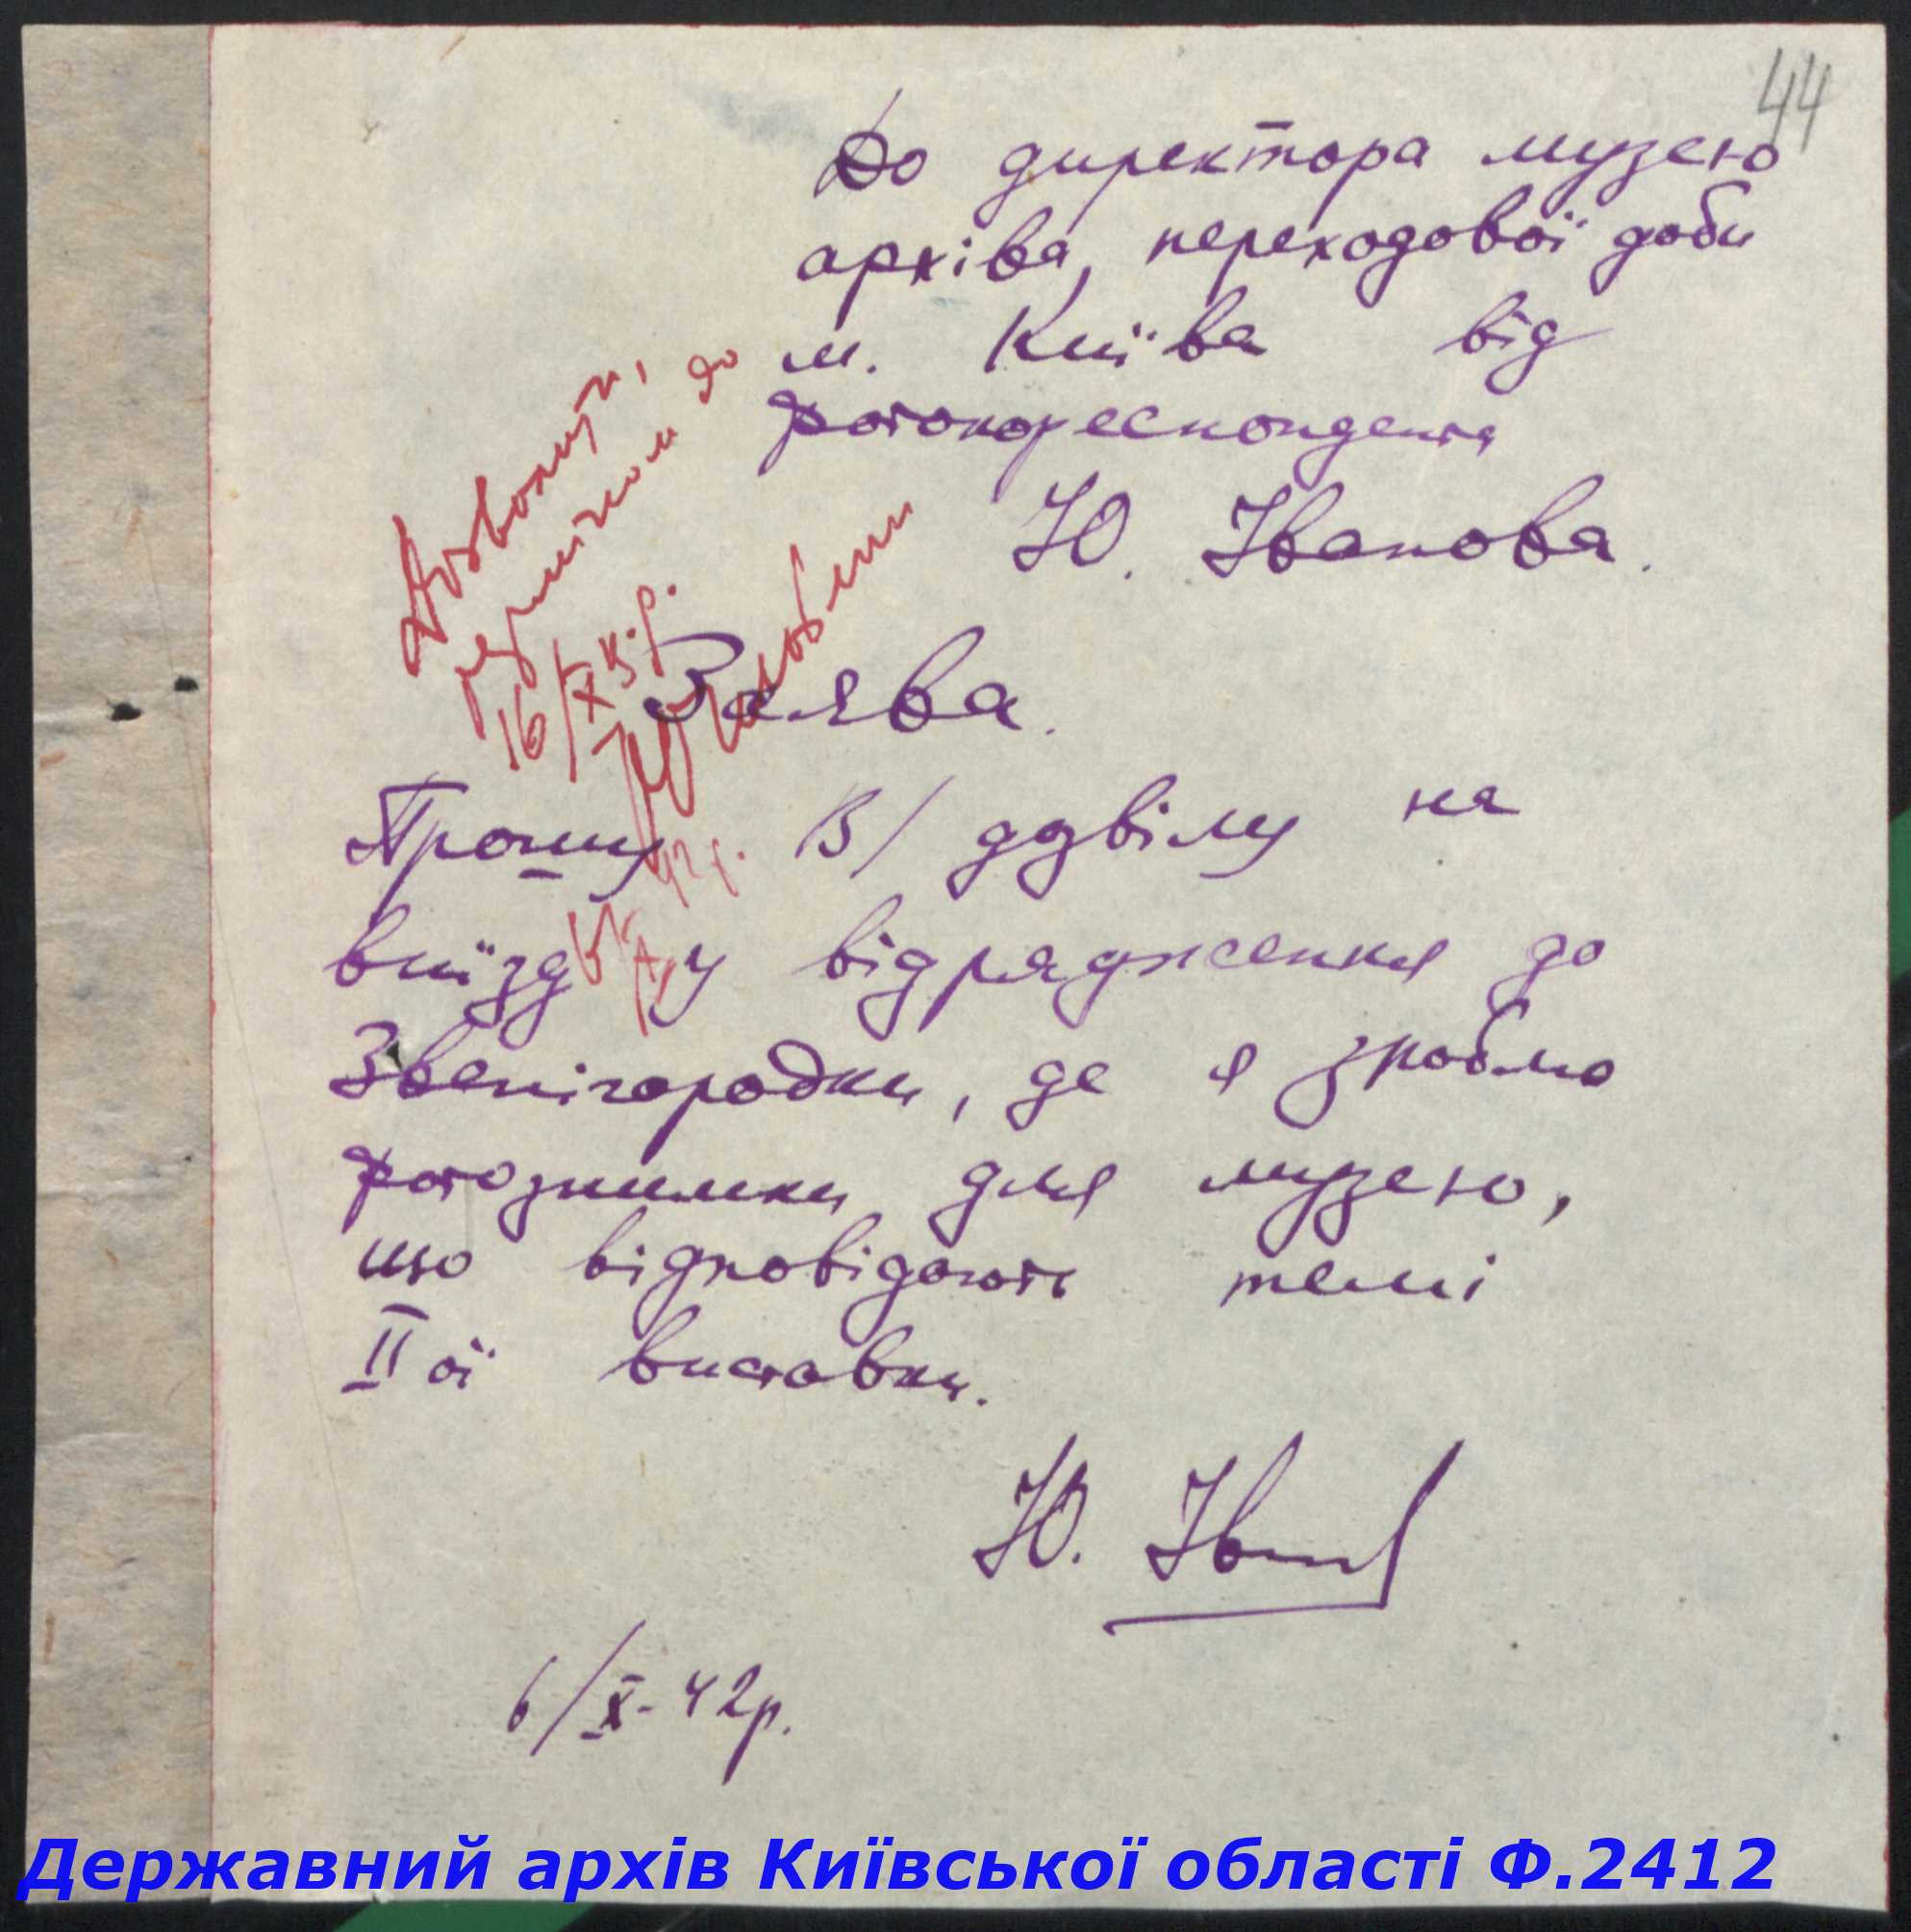 44
До директора музею
архіва, переходової доби
м. Київа від
фотокореспондента
Ю. Іванова.
Дозволити,
терміном до
16/X ц.р.
Заява.
Прошу В/ дозвілу на
42 р.
виїзд у відрядження до
Звенігородки, де я зроблю
фотознимки для музею,
що відповідають темі
II ої виставки.
Ю. Іванов
6/X-42р.
Державний архів Київської області Ф.2412